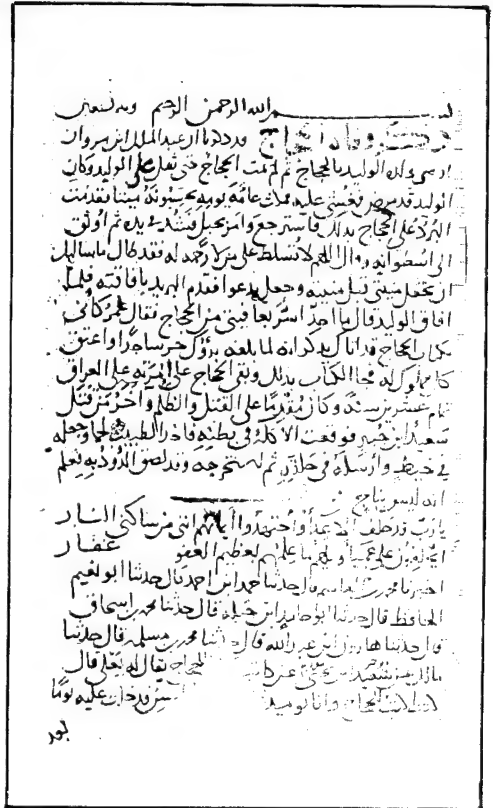 بسم الله الرحمن الرحيم وبه نستعين
وفاة الحجاج ان عبد الملك ابن مروان
اوصى ولده الوليد بالحجاج ثم لم يمت الحجاج حتى ثقل على الوليد وكان
الوليد قد مرض فغشي عليه فمكث عامة يومه يحسبونه ميتا فقدمت
البرد على الحجاج بذلك فاسترجع وامر بحبل فشد في يده ثم اوثق
الى اسطوانة وقال اللهم لا تسلط على من لا رحمة له فقد طال ما سالتك
ان تجعل ميتتي قبل ميتته وجعل يدعوا فقدم البريد بافاقته فلما
افاق الوليد قال ما احد اسر بعافيتي من الحجاج فقال عمر كاني
بكتاب الحجاج قد اتاك يذكر انه لما بلغه برؤك خر ساجدا واعتق
كل مملوك له فجا الكتاب بذلك وبقي الحجاج على العراق
تمام عشرين سنة وكان مقدما على القتل والظلم واخر من قتل
سعيد ابن جبير فوقعت الاكلة في بطنه فاخذ الطبيب لحما وجعله
في خيط وارسله في حلقه ثم استخرجه وقد لصق الدود به فعلم
انه ليس بناج
يا رب قد حلف الاعداء واجتهدوا ايمانهم انني من ساكني النار
ايحلفون على عميا ويلهم ما علمهم بعظيم العفو غفار
اخبرنا محمد قال حدثنا حمد ابن احمد قال حدثنا ابو نعيم
الحافظ قال حدثنا ابو حامد ابن جبلة قال حدثنا محمد بن اسحاق
قال حدثنا هارون ابن عبد الله قال حدثنا محمد بن مسلمة قال حدثنا
مالك يحيى الحجاج يقال له يعلى قال
الحجاج وانا يوميذ فدخلت عليه يوما
بعد